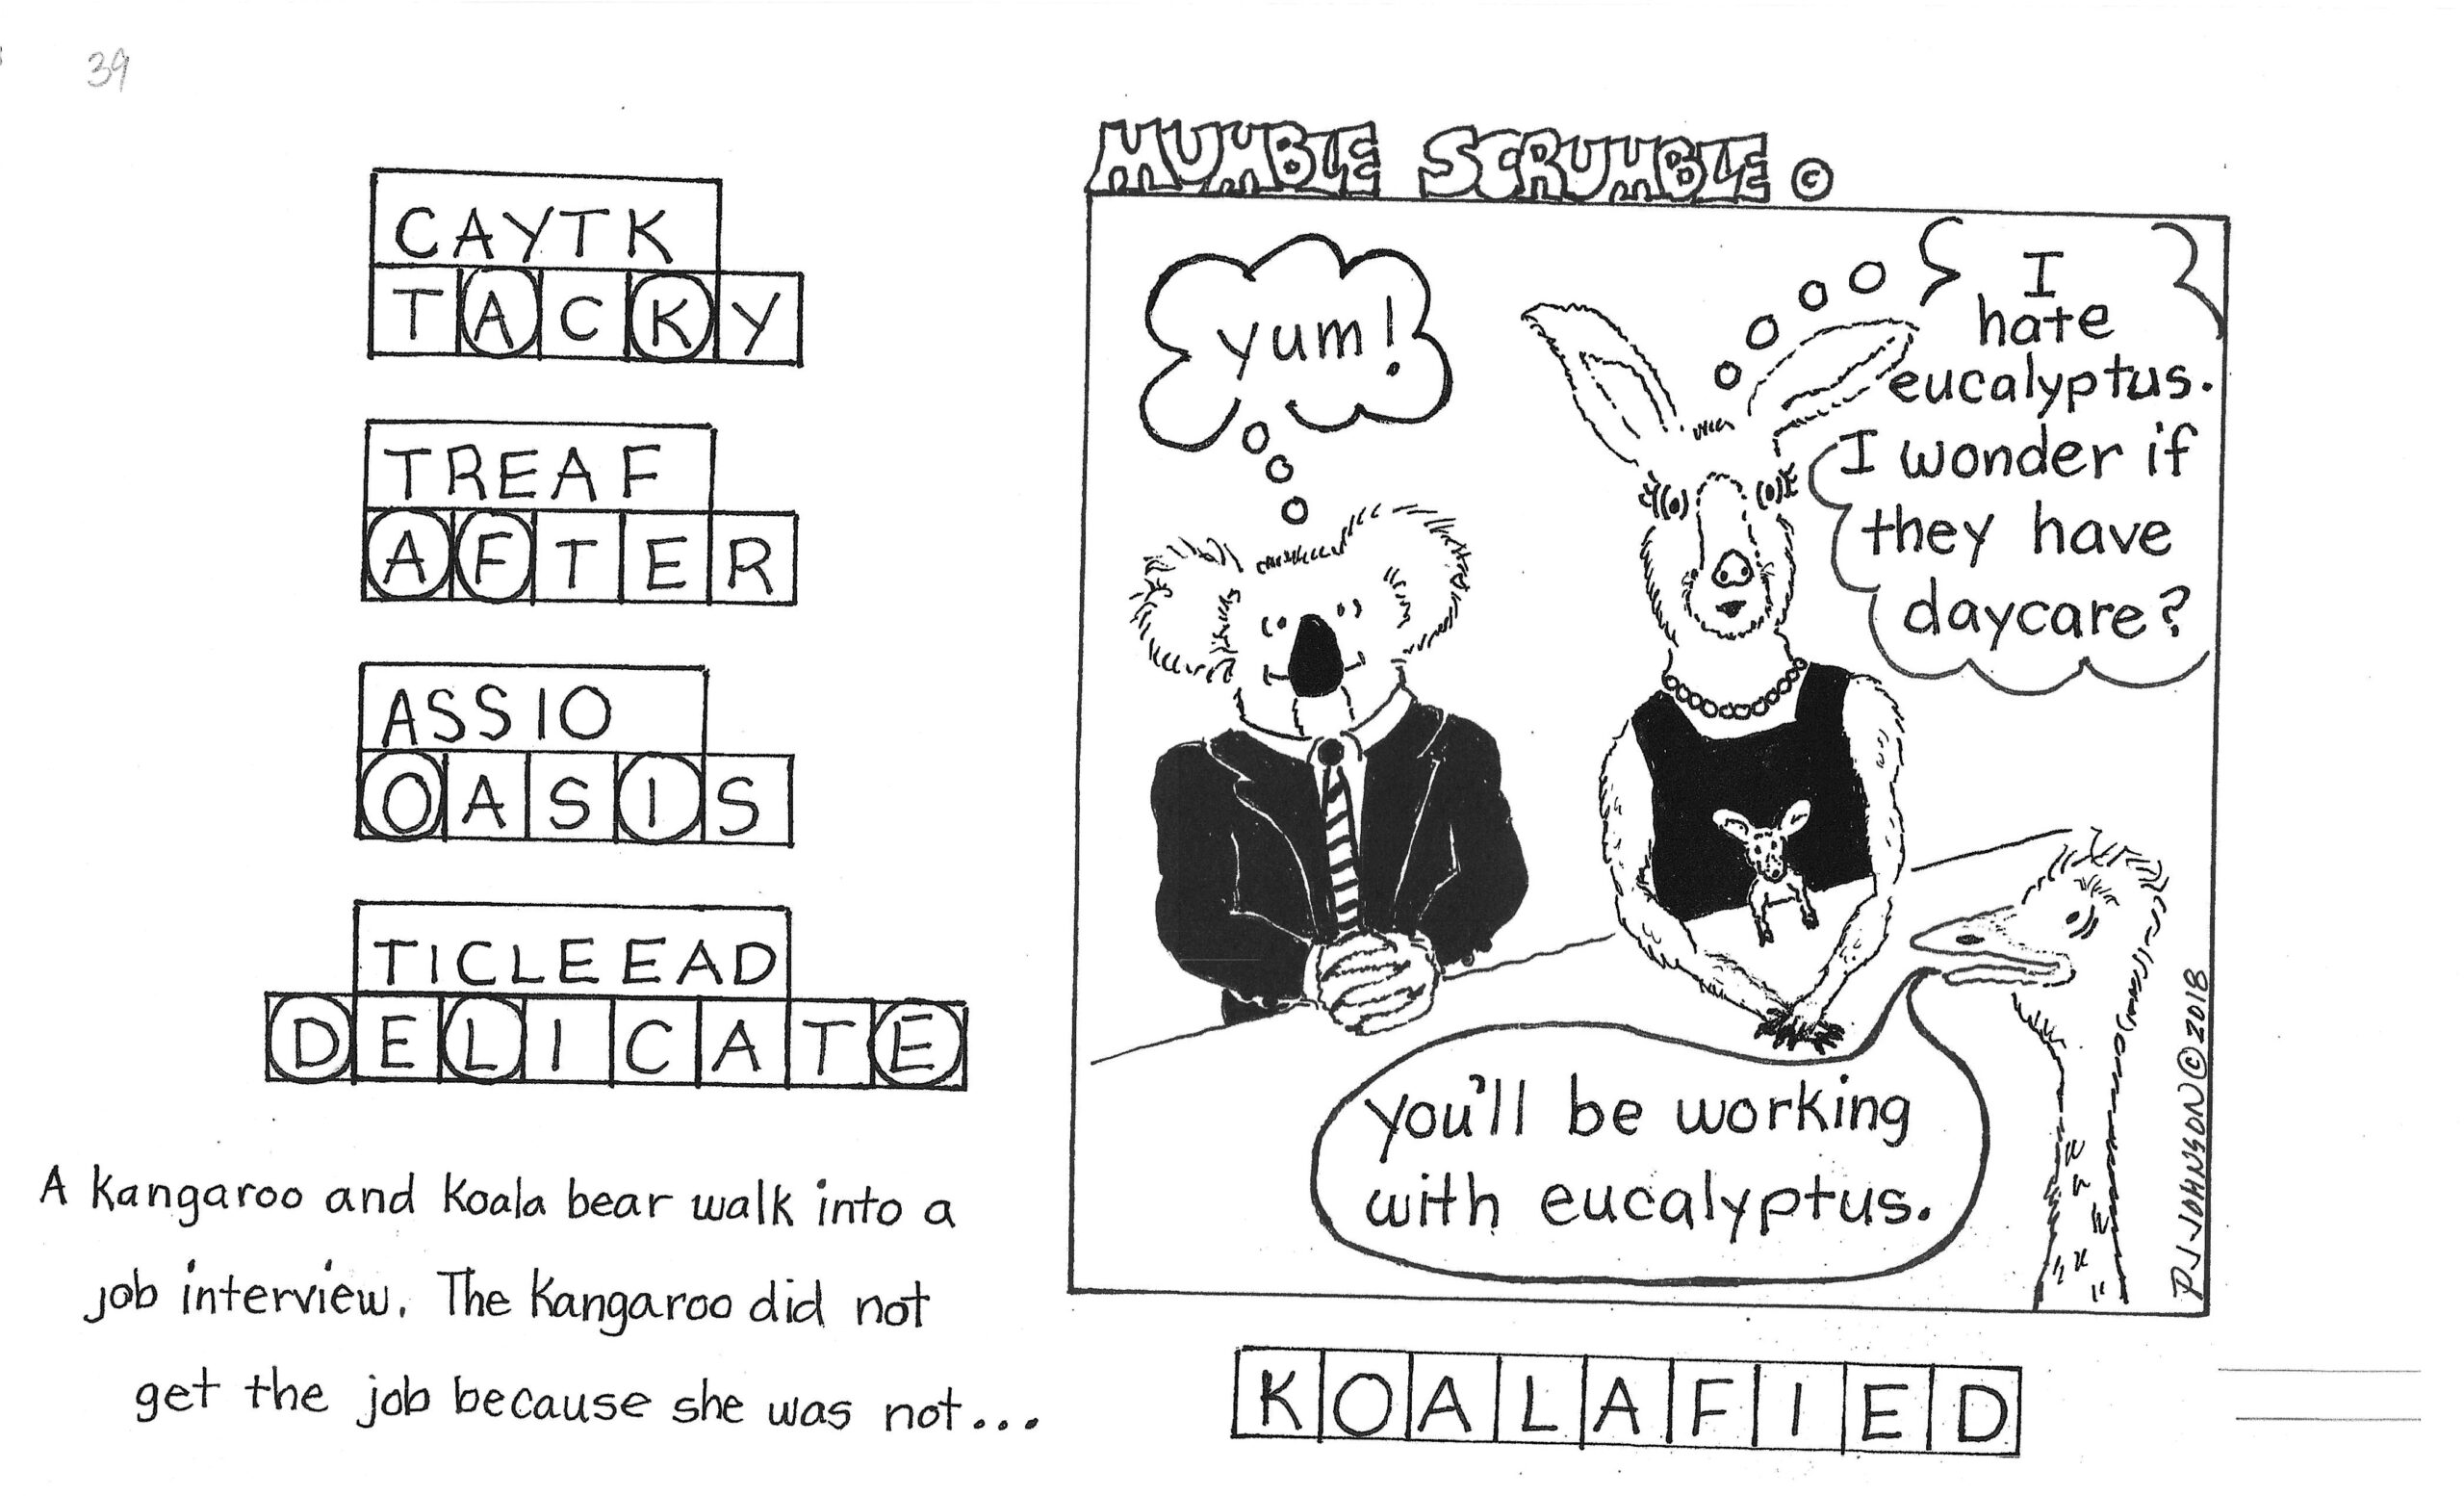 39
MUMBLE SCRUMBLE ©
CAYTK
TACKY
TREAF
AFTER
ASSIO
OASIS
TICLEEAD
DELICATE
A kangaroo and koala bear walk into a
job interview. The kangaroo did not
get the job because she was not...
yum!
I
hate
eucalyptus.
I wonder if
they have
daycare?
you'll be working
with eucalyptus.
PJ JOHNSON © 2018
KOALAFIED